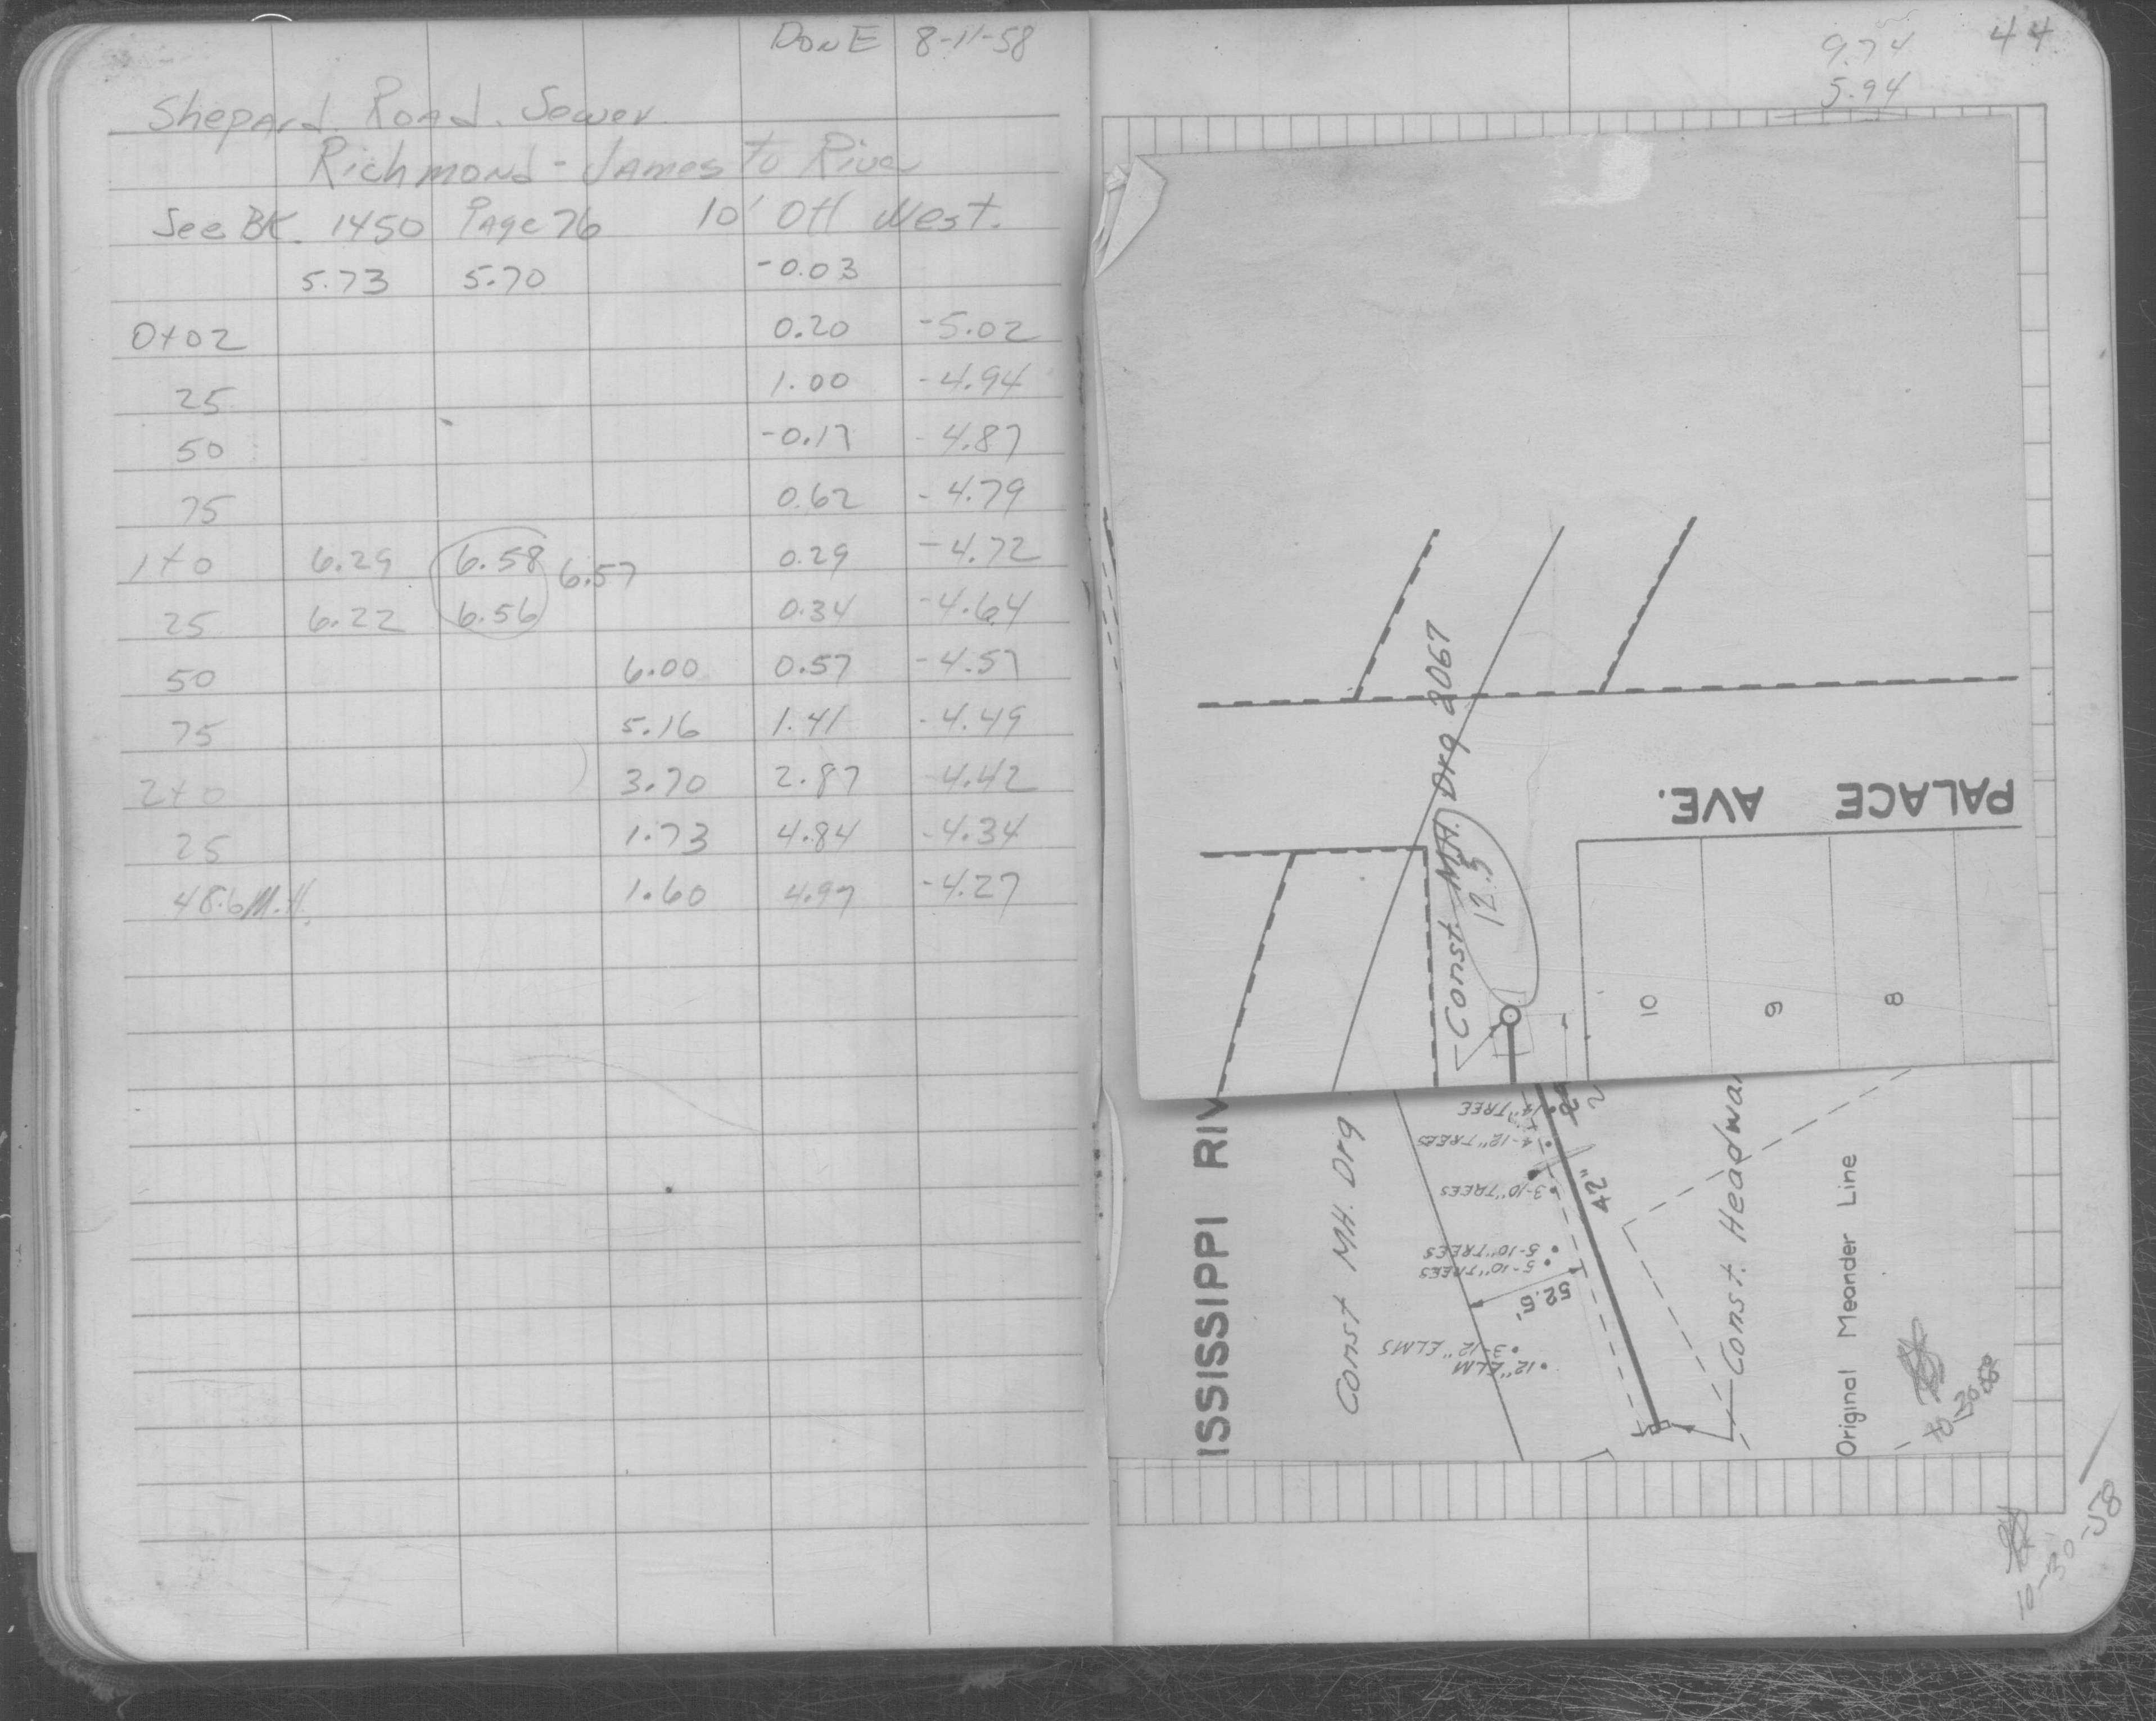 DONE 8-11-58
Shepard Road Sewer
Richmond - James to River
See BK. 1450 Page 76 10' Off West.
5.73 5.70 -0.03
0+02 0.20 -5.02
25 1.00 -4.94
50 -0.17 -4.87
75 0.62 -4.79
1+0 6.29 6.58 6.57 0.29 -4.72
25 6.22 6.56 0.34 -4.64
50 6.00 0.57 -4.57
75 5.16 1.41 -4.49
2+0 3.70 2.87 -4.42
25 1.73 4.84 -4.34
48.6 M.H. 1.60 4.97 -4.27
44
9.74
5.94
PALACE AVE.
Const. MH. Drg 2067
12.5
10
9
8
ISSISSIPPI RIV
Const MH. Drg
4" TREE
4-12" TREES
3-10" TREES
5-10" TREES
5-10" TREES
52.6'
3-12" ELMS
12" ELM
42"
Const. Headwal
Original Meander Line
10-30-58
10-30-58